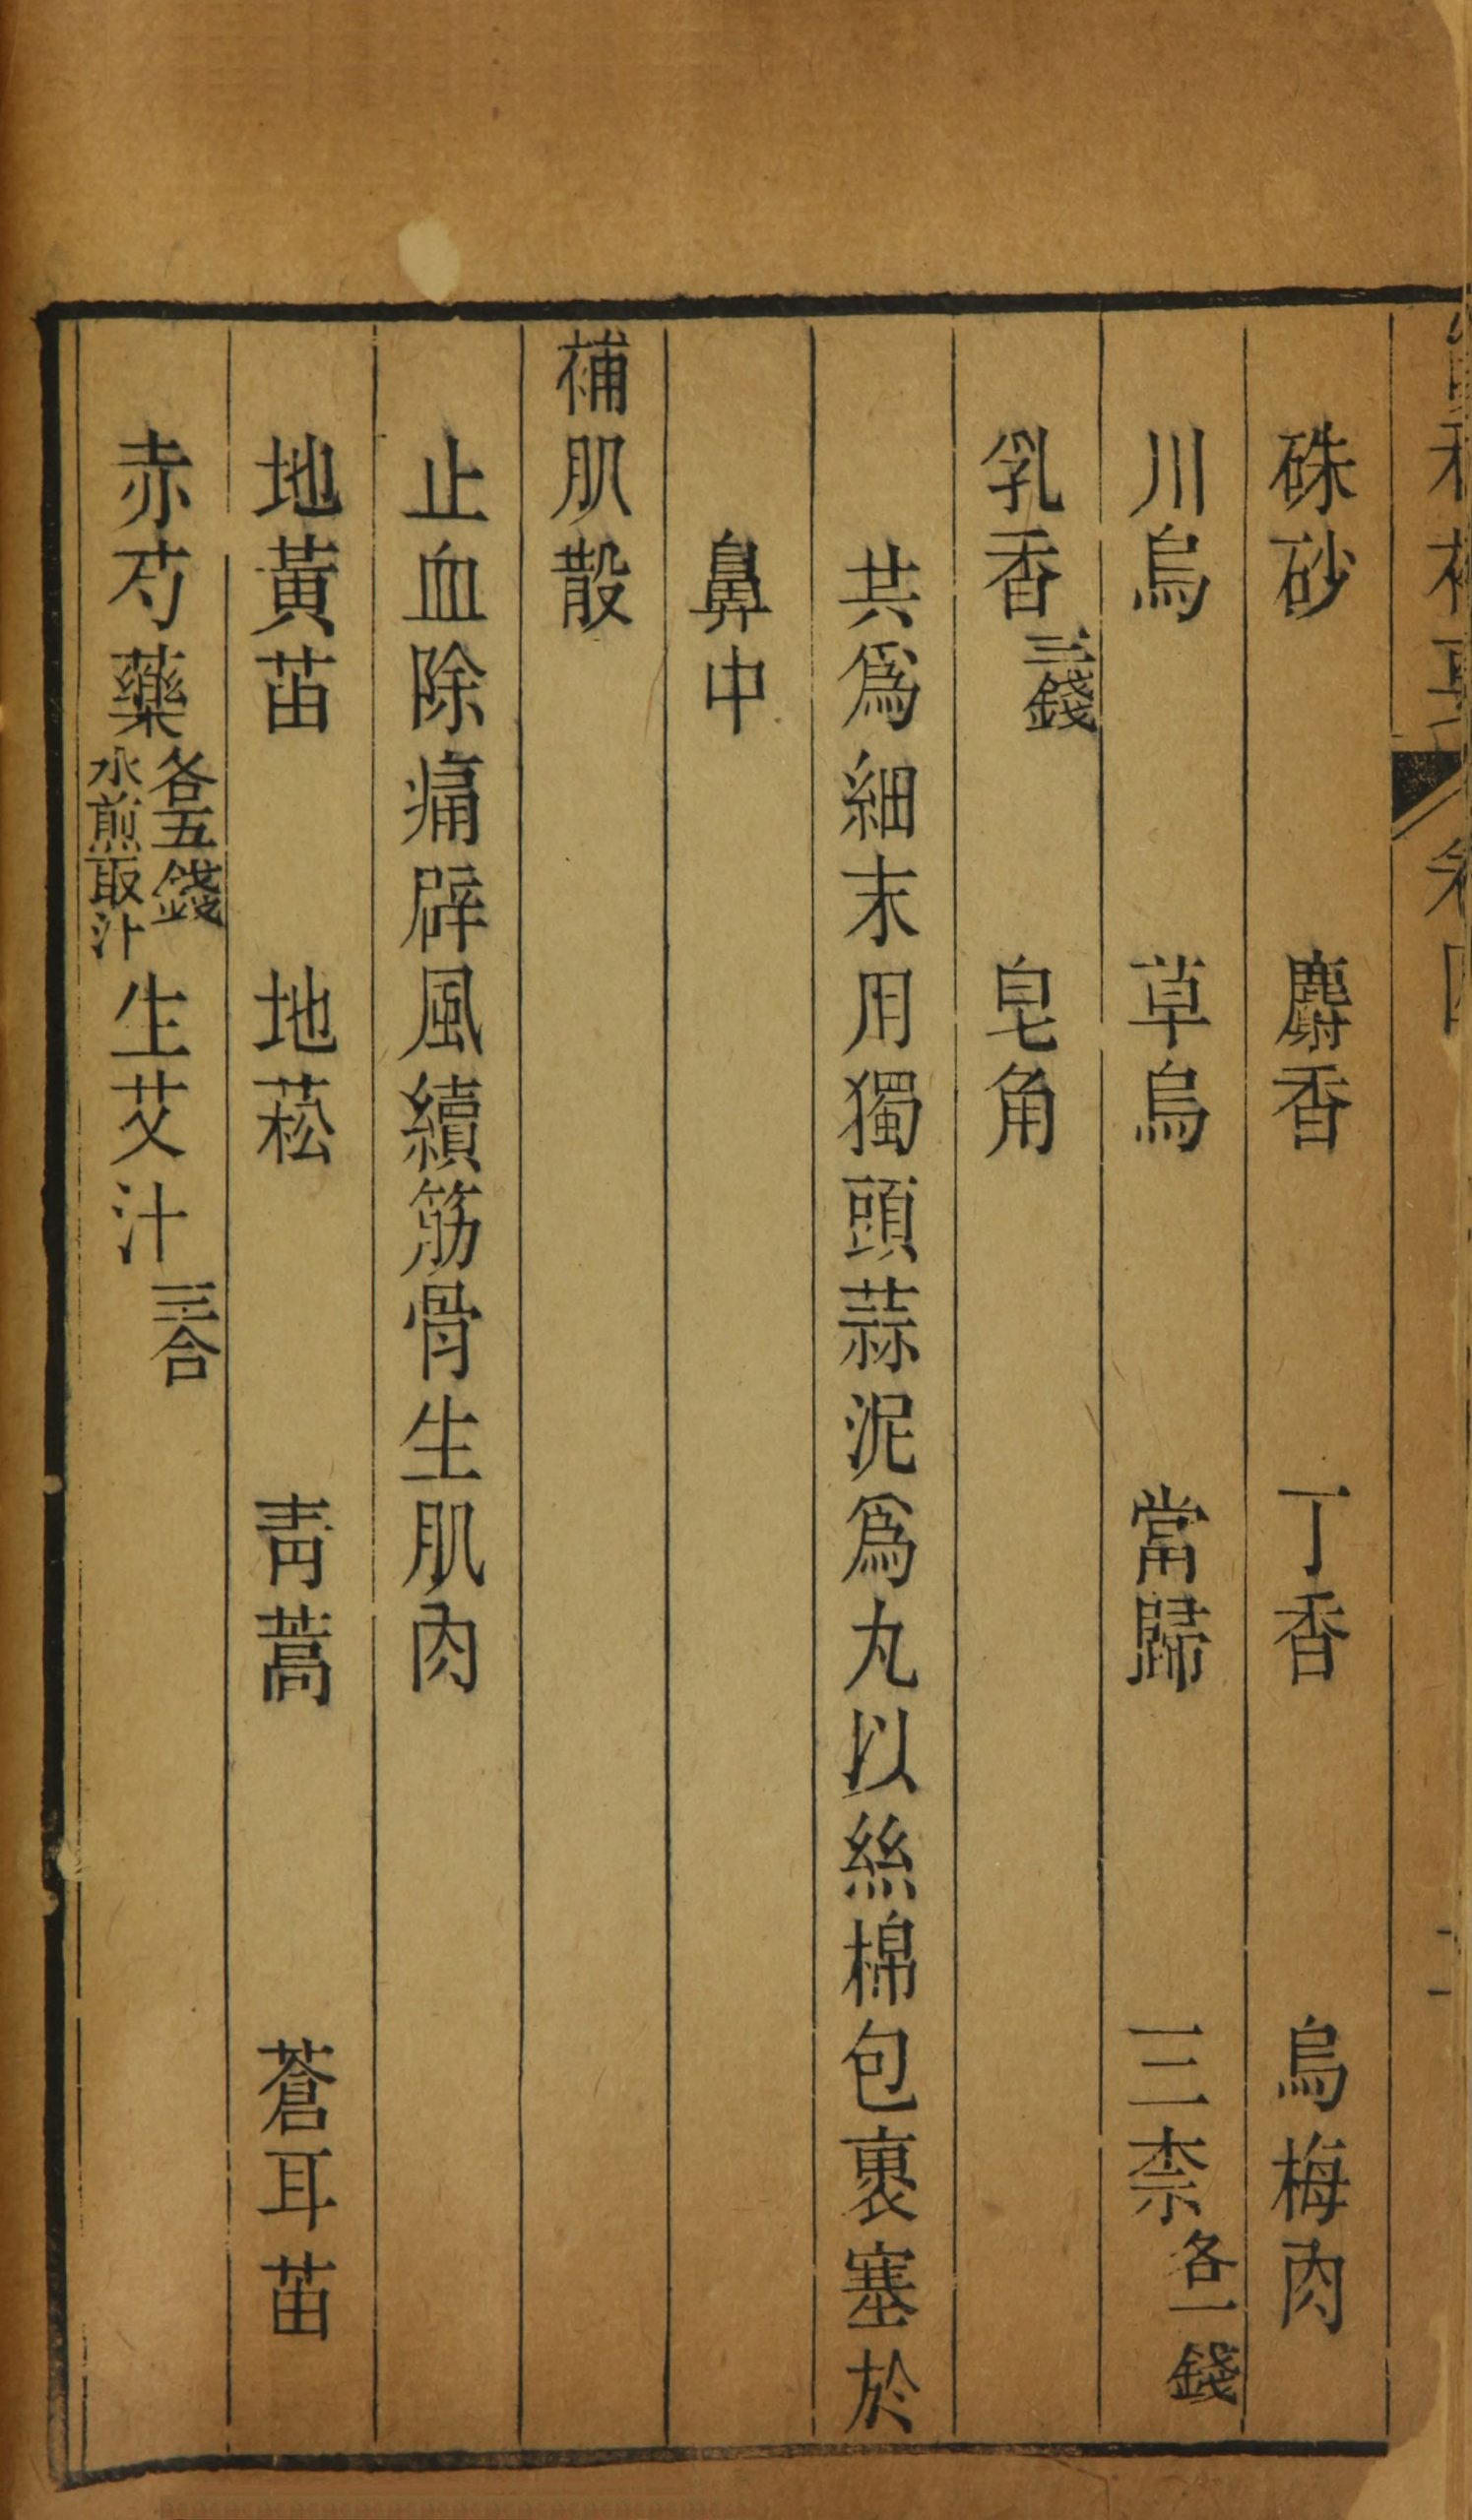 硃砂　麝香　丁香　烏梅肉
川烏　草烏　當歸　三柰各一錢
乳香三錢　皂角
共爲細末用獨頭蒜泥爲丸以絲棉包裹塞於
鼻中
補肌散
止血除痛辟風續筋骨生肌肉
地黃苗　地菘　靑蒿　蒼耳苗
赤芍藥各五錢水煎取汁生艾汁三合